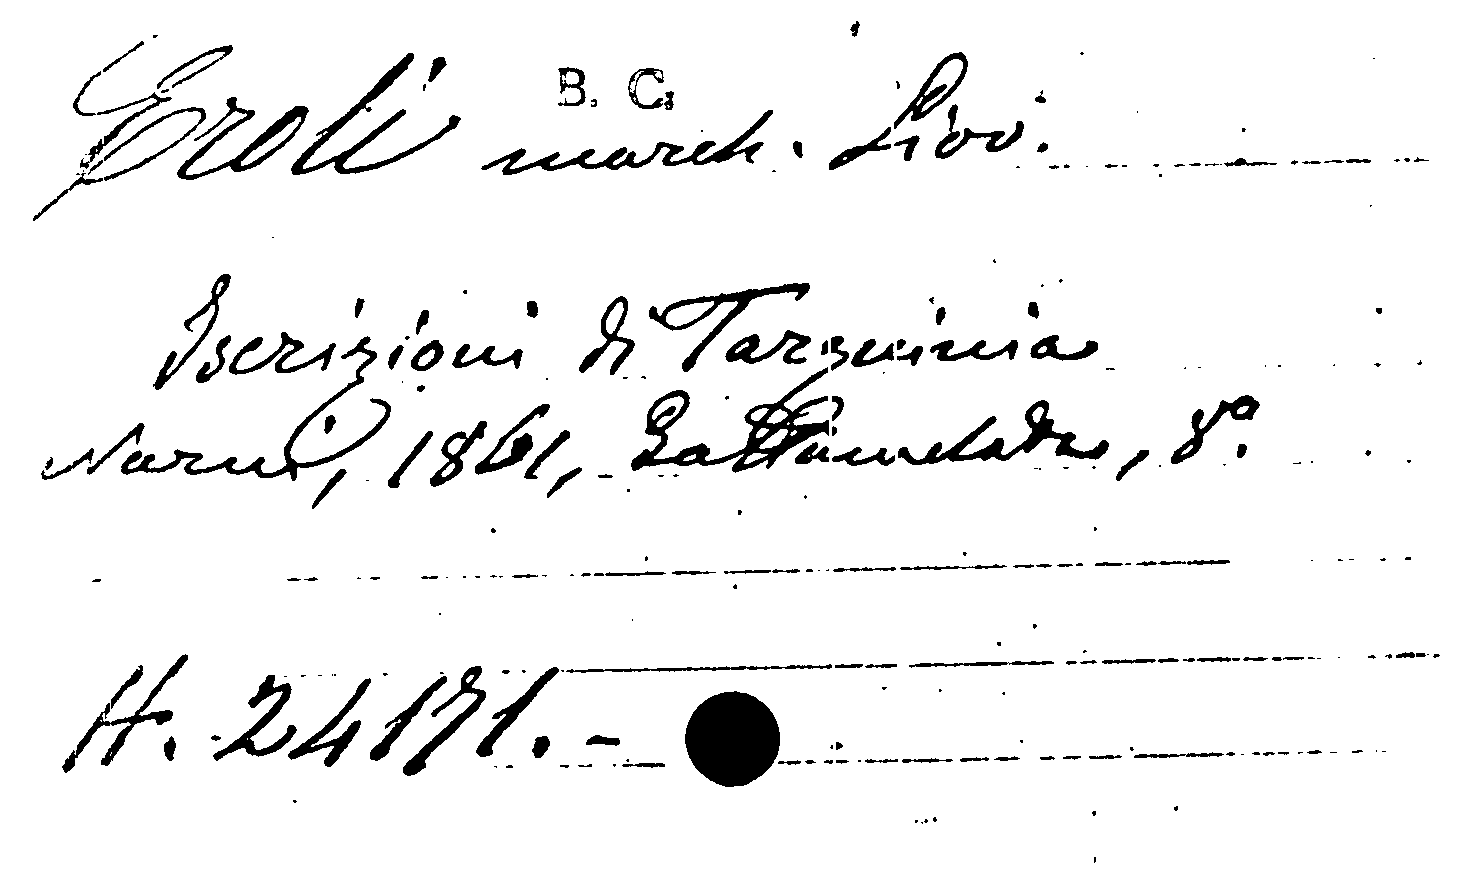 B. C.
Eroli march. Giov.
Iscrizioni di Tarquinia
Narni, 1861, Gattamelata, 8°.
H. 24171. -